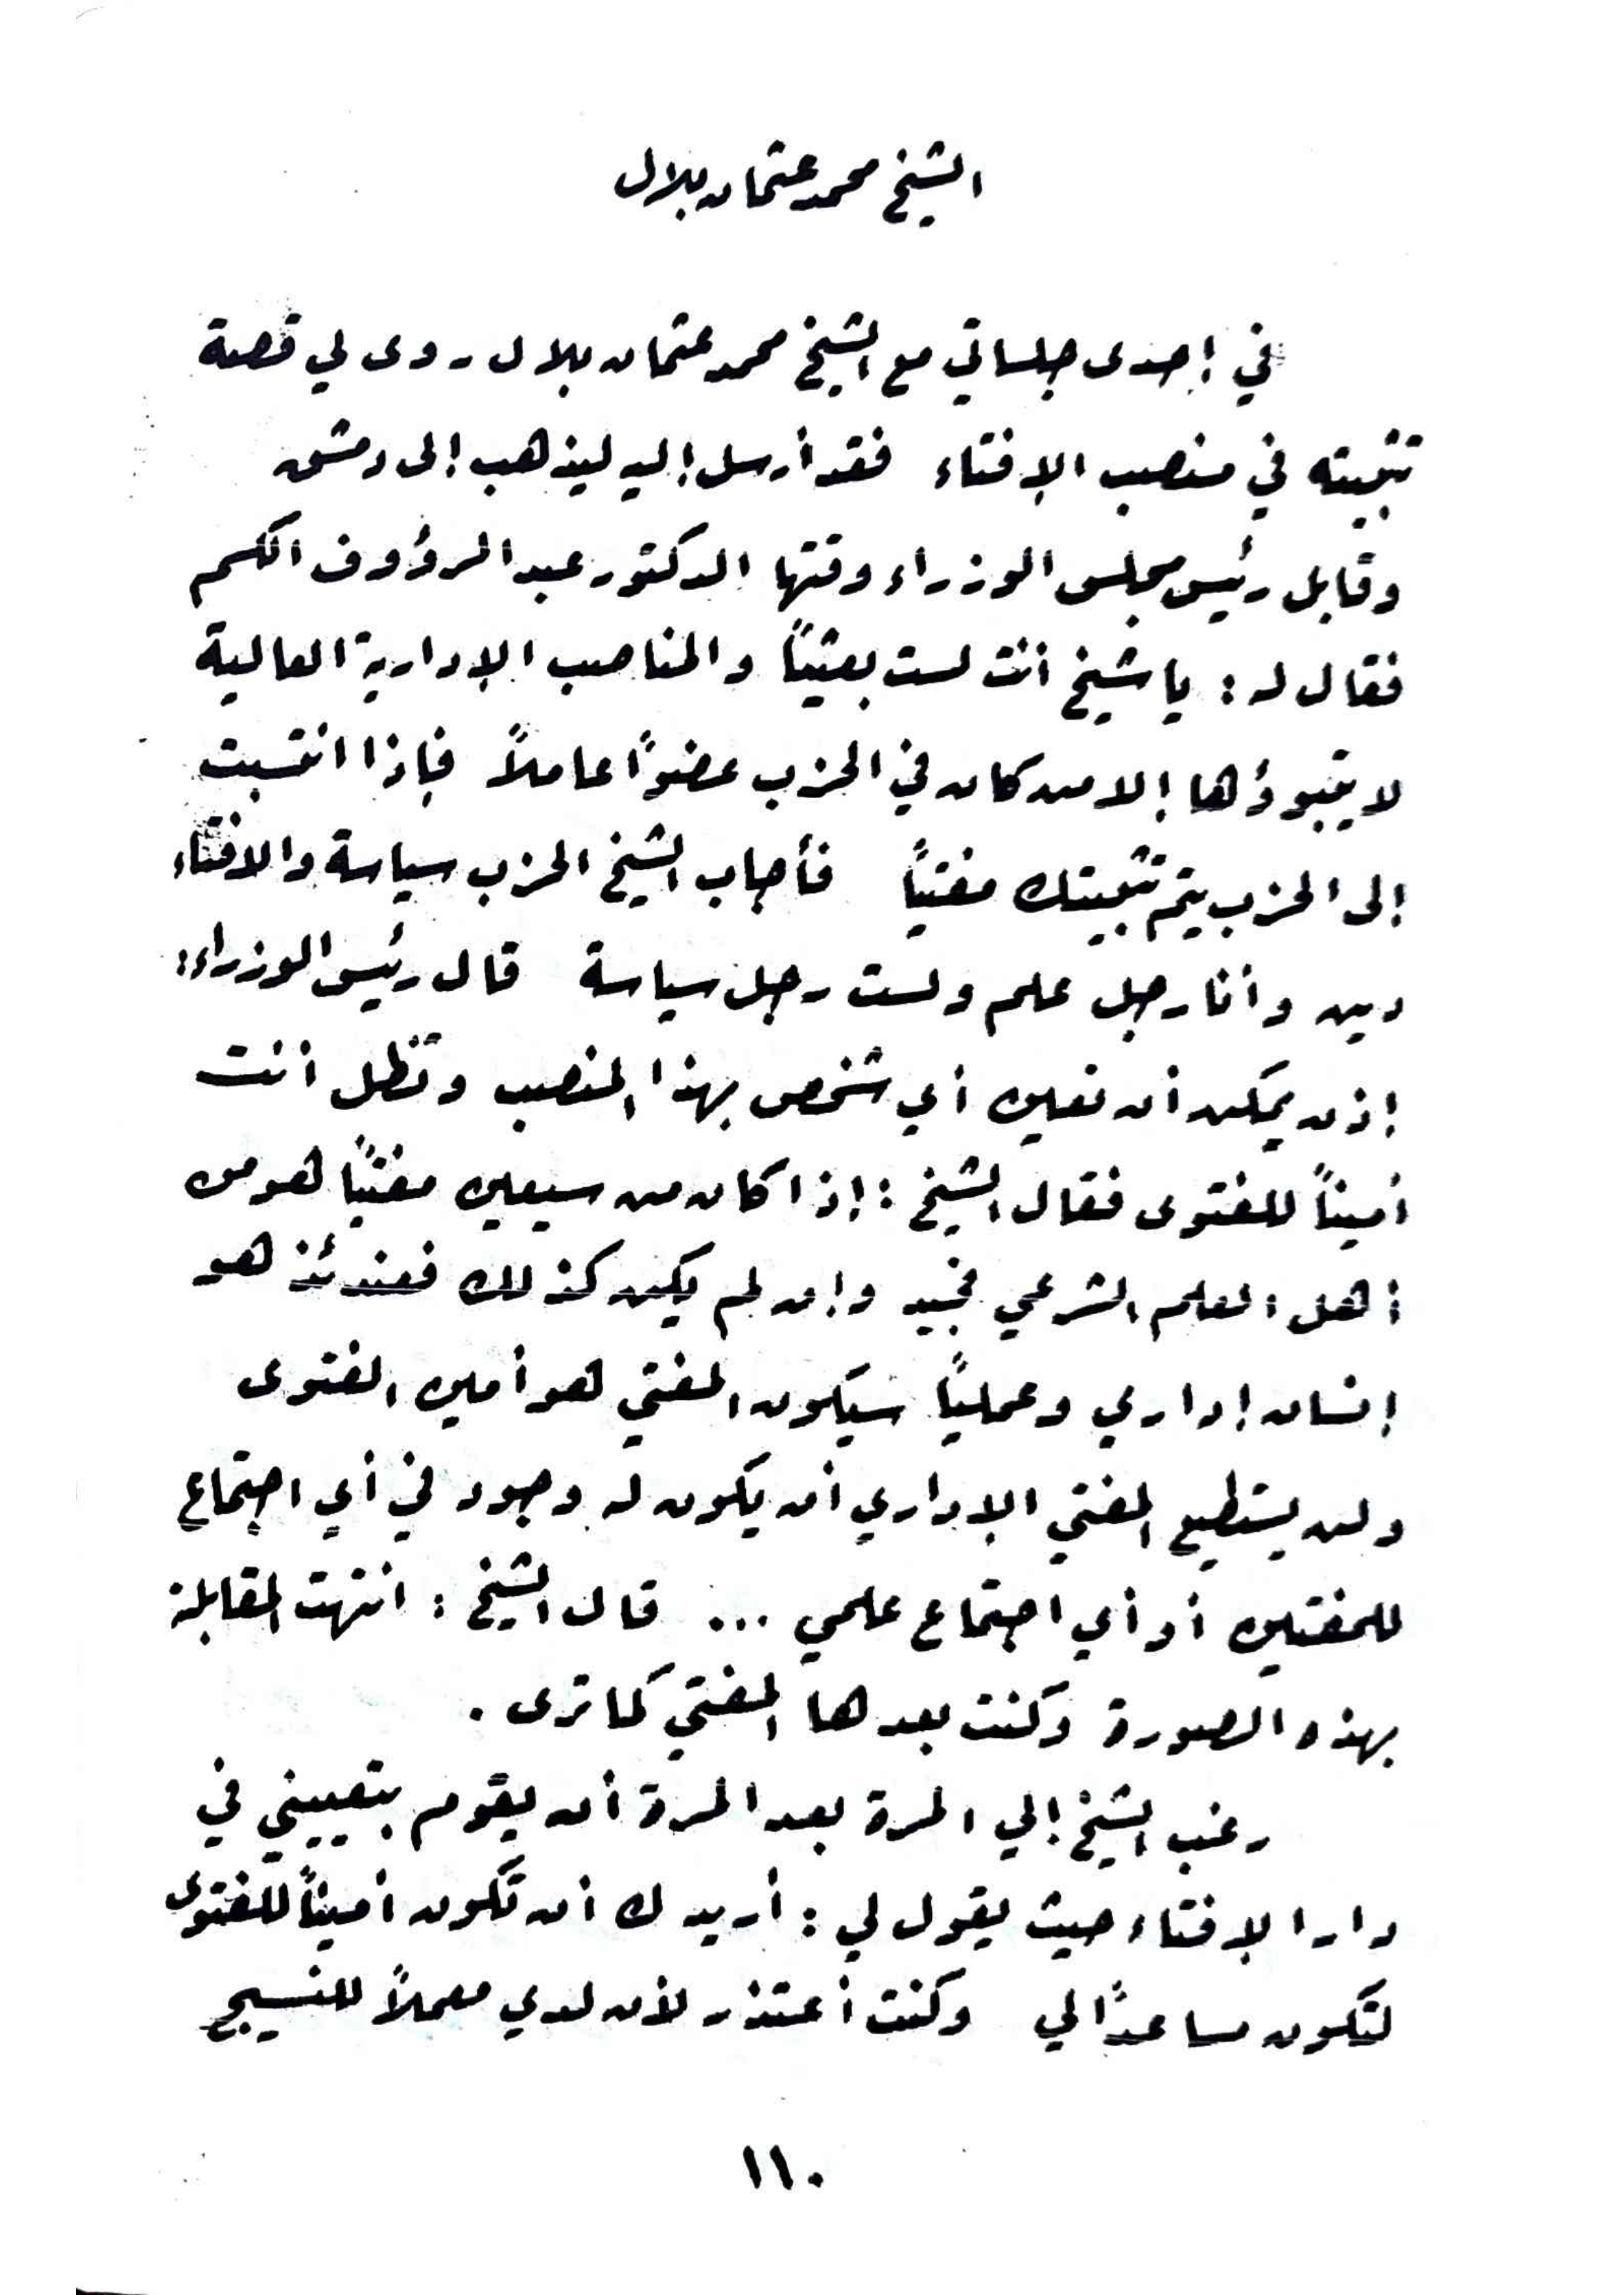 الشيخ محمد عثمان بلال
في إحدى جلساتي مع الشيخ محمد عثمان بلال روى لي قصة
تثبيته في منصب الإفتاء فقد أرسل إليه ليذهب إلى دمشق
وقابل رئيس مجلس الوزراء وقتها الدكتور عبد الرؤوف الكسم
فقال له : يا شيخ أنت لست بعثياً والمناصب الإدارية العالية
لا يتبوؤها إلا من كان في الحزب عضواً عاملاً فإذا انتسبت
إلى الحزب يتم تثبيتك مفتياً فأجاب الشيخ الحزب سياسة والافتاء
دين وأنا رجل علم ولست رجل سياسة قال رئيس الوزراء :
إذن يمكن أن نعين أي شخص بهذا المنصب وتظل أنت
أميناً للفتوى فقال الشيخ : إذا كان من سيعين مفتياً هو من
أهل العلم الشرعي فجيد وإن لم يكن كذلك فعندئذ هو
إنسان إداري وعملياً سيكون المفتي هو أمين الفتوى
ولن يستطيع المفتي الإداري أن يكون له وجود في أي اجتماع
للمفتين أو أي اجتماع علمي ... قال الشيخ : انتهت المقابلة
بهذه الصورة وكنت بعدها المفتي كما ترى .
رغب الشيخ إلي المرة بعد المرة أن يقوم بتعييني في
دار الإفتاء حيث يقول لي : أريدك أن تكون أميناً للفتوى
لتكون مساعداً لي وكنت أعتذر لأن لدي معملاً للنسيج
١١٠